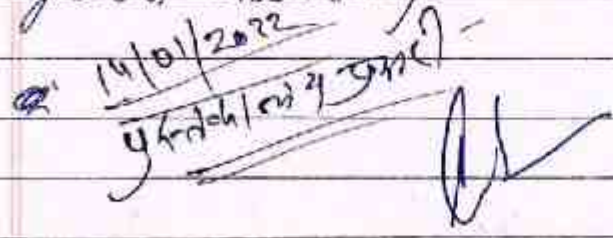 14/01/2022
पुस्तकालय प्रभारी -